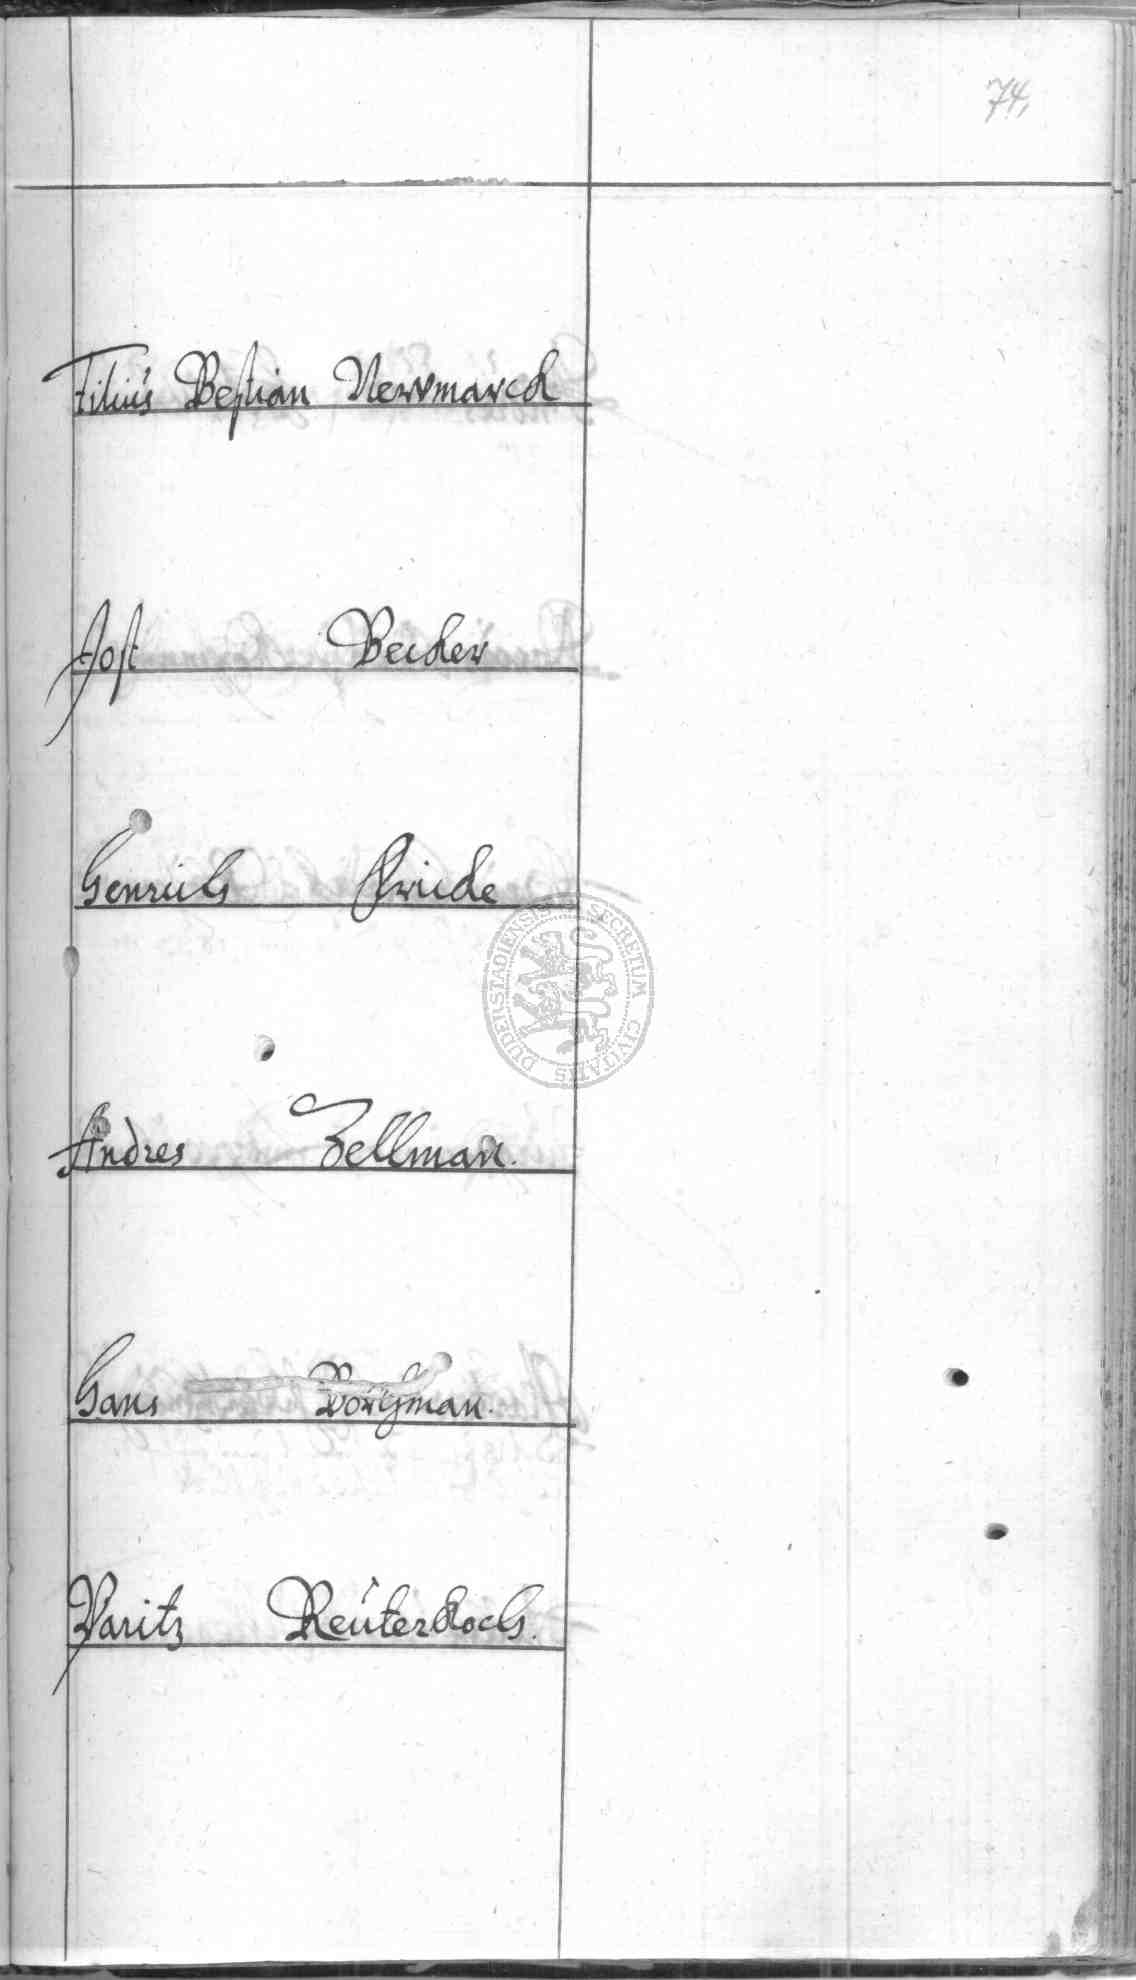 74,
Filius Bestian Newmarck
Jost Becker
Henrich Fricke
DUDERSTADIENSIS SECRETUM CIVITATIS
Andres Zellman.
Hans Borchman.
Maritz Reüterkoch.